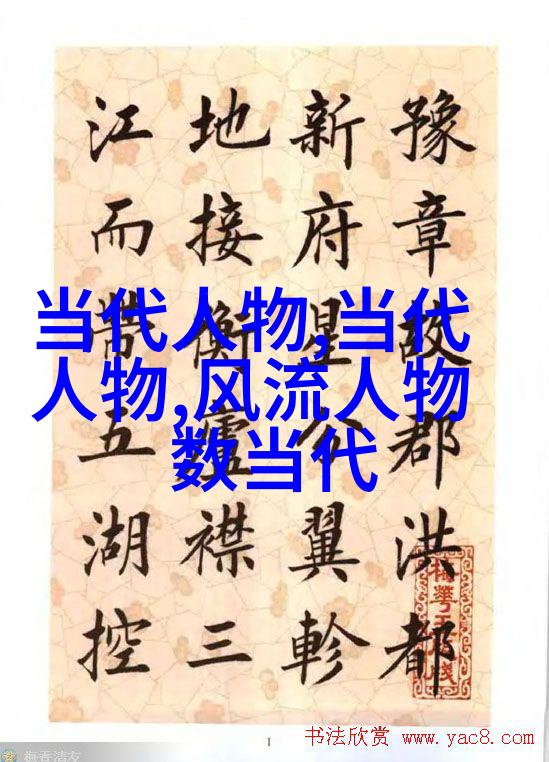 豫章故郡洪都
新府星分翼軫
地接衡廬襟三
江而帶五湖控
当代人物,当代
人物,风流人物
数当代
1
书法欣赏 www.yac8.com